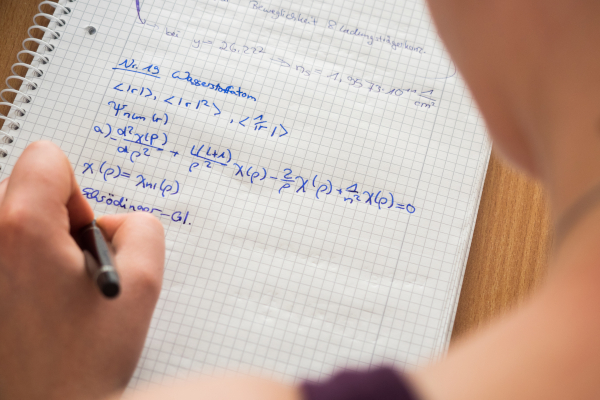 Beweglichkeit & Ladungsträgerkonz.
bei y = 26,27² ⇒ n_s = 1,9573·10 1/cm²
Nr. 19 Wasserstoffatom
<|r|>, <|r|²>, <1/|r|>
Ψnlm(r)
a) -d²χ(ρ)/dρ² + l(l+1)/ρ² χ(ρ) - 2/ρ χ(ρ) + 1/n² χ(ρ) = 0
χ(ρ) = χnl(ρ)
Schrödinger-Gl.